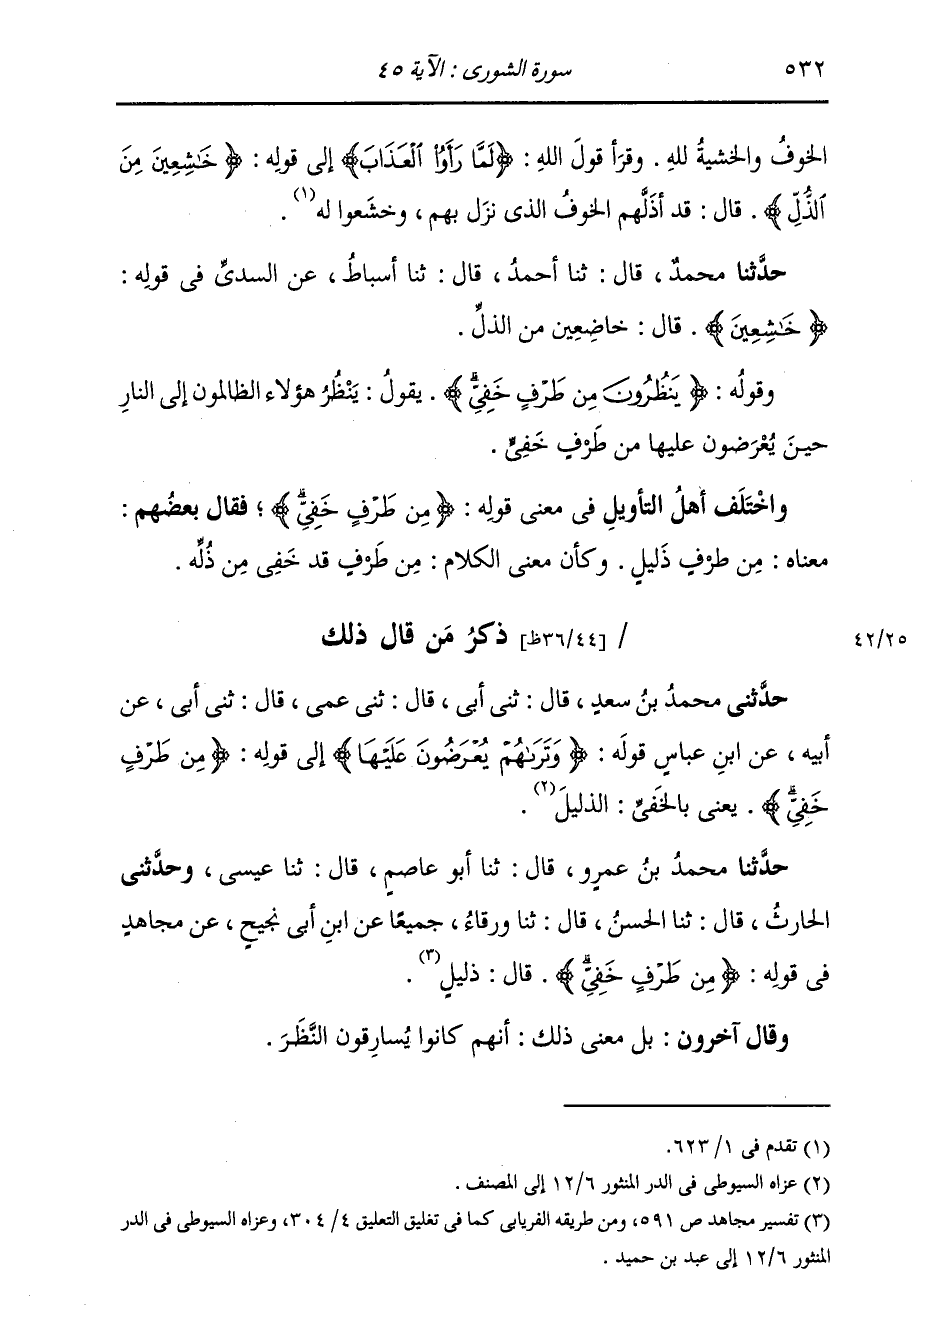 ٥٣٢ سورة الشورى : الآية ٤٥
الخوفُ والخشيةُ للهِ . وقرَأ قولَ اللهِ : ﴿لَمَّا رَأَوُا۟ ٱلْعَذَابَ﴾ إلى قولِه : ﴿ خَـٰشِعِينَ مِنَ
ٱلذُّلِّ﴾ . قال : قد أذَلَّهم الخوفُ الذى نزَل بهم ، وخشَعوا له(١) .
حدَّثنا محمدٌ ، قال : ثنا أحمدُ ، قال : ثنا أسباطُ ، عن السدىِّ فى قولِه :
﴿ خَـٰشِعِينَ ﴾ . قال : خاضِعِين من الذلِّ .
وقولُه : ﴿ يَنظُرُونَ مِن طَرْفٍ خَفِيٍّۗ ﴾ . يقولُ : يَنْظُرُ هؤلاء الظالمون إلى النارِ
حينَ يُعْرَضون عليها من طَرْفٍ خَفِىٍّ .
واخْتَلَف أهلُ التأويلِ فى معنى قولِه : ﴿ مِن طَرْفٍ خَفِيٍّۗ ﴾ ؛ فقال بعضُهم :
معناه : مِن طرْفٍ ذَليلٍ . وكأن معنى الكلام : مِن طَرْفٍ قد خَفِى مِن ذُلِّه .
٤٢/٢٥ / [٣٦/٤٤ظ] ذكرُ مَن قال ذلك
حدَّثنى محمدُ بنُ سعدٍ ، قال : ثنى أبى ، قال : ثنى عمى ، قال : ثنى أبى ، عن
أبيه ، عن ابنِ عباسٍ قولَه : ﴿ وَتَرَىٰهُمْ يُعْرَضُونَ عَلَيْهَا ﴾ إلى قولِه : ﴿ مِن طَرْفٍ
خَفِيٍّۗ ﴾ . يعنى بالخَفىِّ : الذليلَ(٢) .
حدَّثنا محمدُ بنُ عمرٍو ، قال : ثنا أبو عاصمٍ ، قال : ثنا عيسى ، وحدَّثنى
الحارثُ ، قال : ثنا الحسنُ ، قال : ثنا ورقاءُ ، جميعًا عن ابنِ أبى نجيحٍ ، عن مجاهدٍ
فى قولِه : ﴿ مِن طَرْفٍ خَفِيٍّۗ ﴾ . قال : ذليلٍ(٣) .
وقال آخرون : بل معنى ذلك : أنهم كانوا يُسارِقون النَّظَرَ .
(١) تقدم فى ١/ ٦٢٣.
(٢) عزاه السيوطى فى الدر المنثور ١٢/٦ إلى المصنف .
(٣) تفسير مجاهد ص ٥٩١، ومن طريقه الفريابى كما فى تغليق التعليق ٤/ ٣٠٤، وعزاه السيوطى فى الدر
المنثور ١٢/٦ إلى عبد بن حميد .